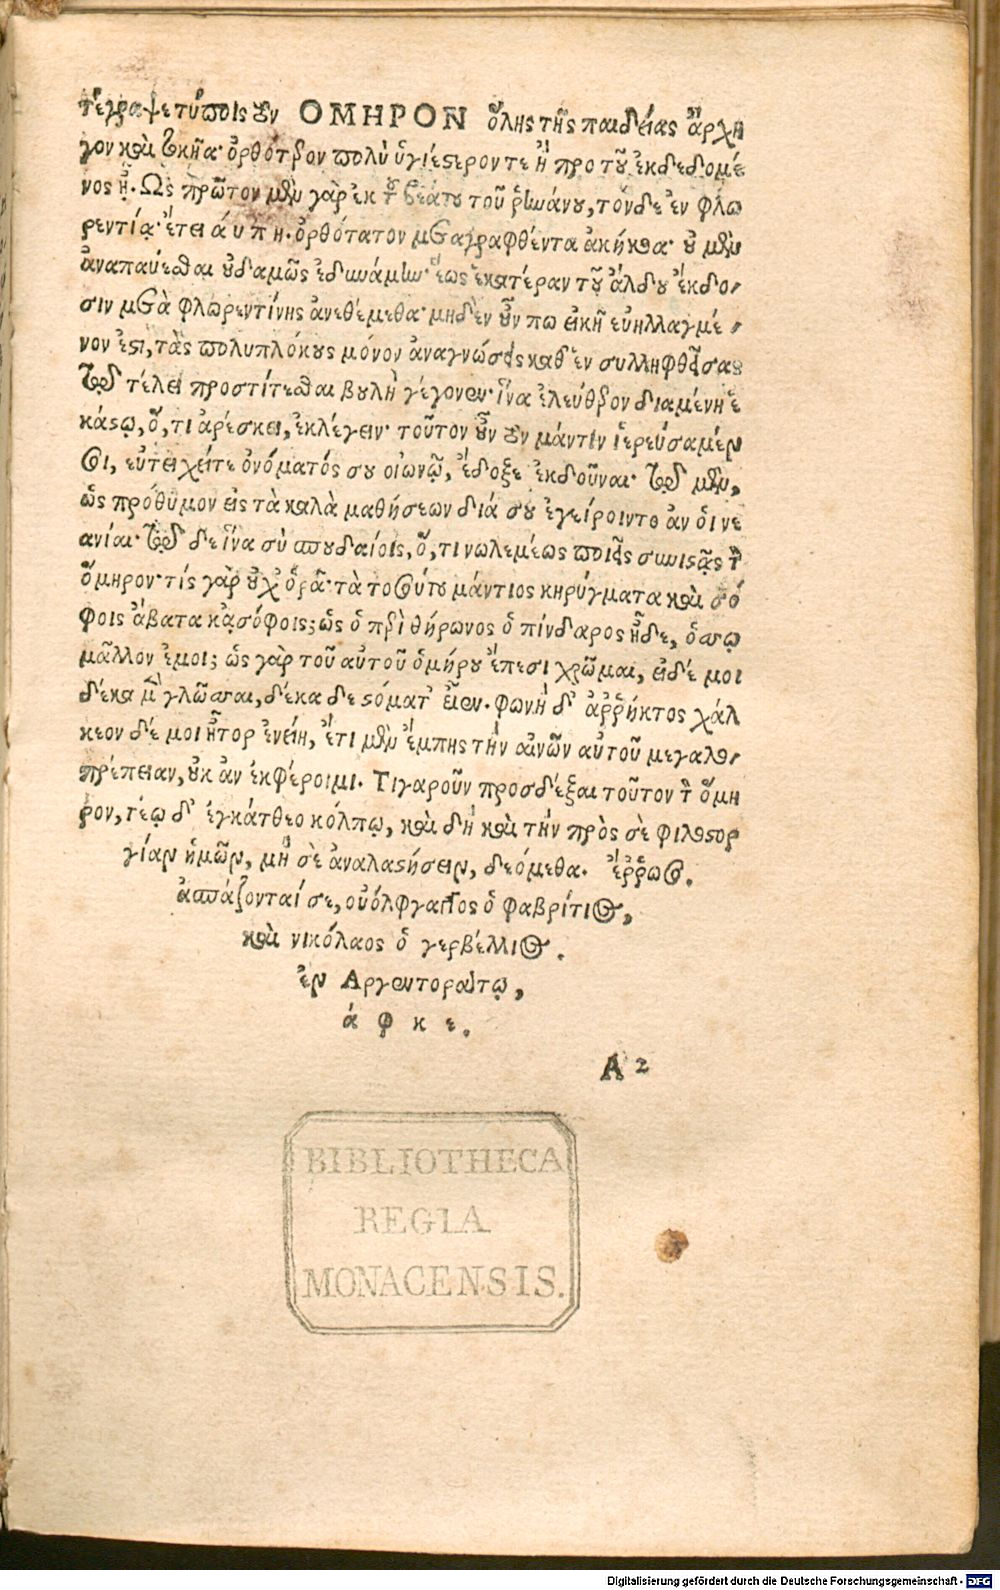 τέγραψε τύποις οὖν ΟΜΗΡΟΝ ὅλης τῆς παιδείας ἄρχη
γον καὶ ὀρθότερον πολὺ ὑγιέστερον τε ἢ προ τοῦ ἐκδεδομέ
νος ᾖ. Ὡς πρῶτον μὲν γὰρ ἐκ τοῦ τοῦ τόνδε ἐν φλω
ρεντίᾳ· ἔτει ά υ π η. ὀρθότατον μεταγραφθέντα ἀκήκοα· οὐ μὲν
ἀναπαύεσθαι οὐδαμῶς ἐδυνάμην· ἕως ἑκατέραν τοῦ ἄλδου ἔκδο-
σιν μετὰ φλωρεντίνης ἀνεθέμεθα· μηδὲν οὖν πω εἰκῆ εὐηλλαγμέ-
νον ἐστί, τὰς πολυπλόκους μόνον ἀναγνώσεις καθ' ἓν συλληφθείσας
τῷ τέλει προστίτεσθαι βουλὴ γέγονεν· ἵνα ἐλεύθερον διαμένη ἑ
κάστῳ, ὅ, τι ἀρέσκει, ἐκλέγειν· τοῦτον οὖν μάντιν ἱερεύσαμέν
τοι, εὐτειχεῖτε ὀνόματός σου οἰωνῷ, ἔδοξε ἐκδοῦναι· μὲν,
ὡς πρόθυμον εἰς τὰ καλὰ μαθήσεων διά σου ἐγείροιντο ἂν ὁι νε
ανίαι· δε ἵνα σὺ σπουδαίοις, ὅ, τι νωλεμέως ποιεῖς συνιστᾷς τὸν
ὅμηρον· τίς γὰρ οὐχ ὁρᾷ· τὰ τοσούτου μάντιος κηρύγματα καὶ σό
φοις ἄβατα κᾀσόφοις; ὡς ὁ περὶ θήρωνος ὁ πίνδαρος ᾖδε, ὅσῳ
μᾶλλον ἐμοι; ὡς γὰρ τοῦ αὐτοῦ ὁμήρου ἔπεσι χρῶμαι, εἰδέ μοι
δέκα μὲν γλῶσσαι, δέκα δε στόματ' εἶεν. φωνὴ δ' ἀῤῥήκτος χάλ
κεον δέ μοι ἦτορ ἐνείη, ἔτι μὲν ἔμπης τὴν αἰνῶν αὐτοῦ μεγαλο-
πρέπειαν, οὐκ ἂν ἐκφέροιμι. Τιγαροῦν προσδέξαι τοῦτον τὸν ὅμη
ρον, τέῳ δ' ἐγκάτθεο κόλπῳ, καὶ δὴ καὶ τὴν πρὸς σὲ φιλοστορ
γίαν ἡμῶν, μὴ σὲ ἀναλαστήσειν, δεόμεθα. ἔῤῥωσο.
ἀσπάζονταί σε, οὐόλφγαγγος ὁ φαβρίτιος,
καὶ νικόλαος ὁ γερβέλλιος.
ἐν Αργεντοράτῳ,
ά φ κ ε.
A 2
BIBLIOTHECA
REGIA
MONACENSIS.
Digitalisierung gefördert durch die Deutsche Forschungsgemeinschaft - DFG